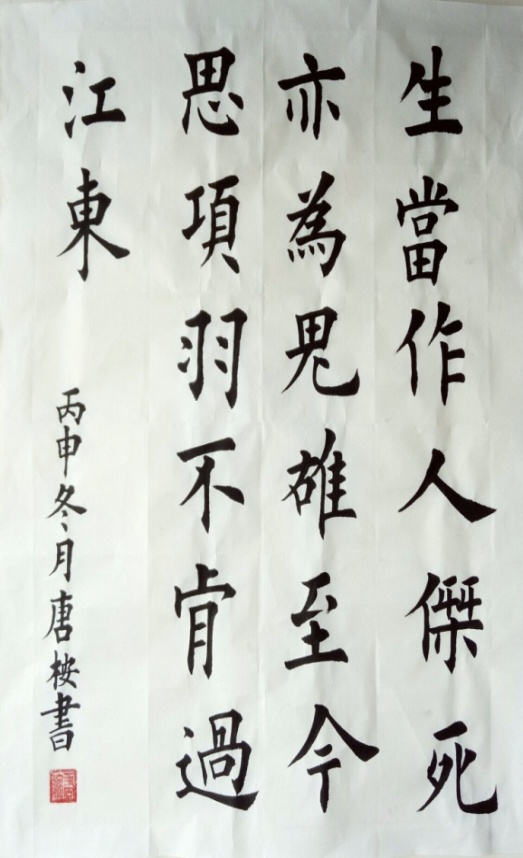 生當作人傑死
亦為鬼雄至今
思項羽不肯過
江東
丙申冬月唐桉書